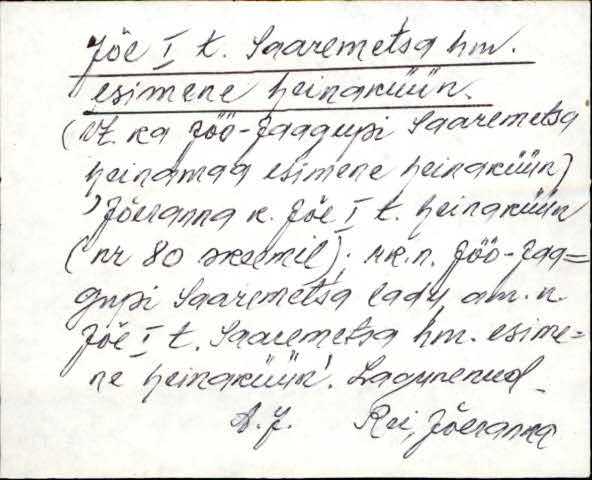 Jõe I t. Saaremetsa hm.
esimene heinaküün.
(Vt. ka Jöö-Jaagupi Saaremetsa
heinamaa esimene heinaküün)
Jõeranna k. Jõe I t. heinaküün
(nr 80 skeemil); rk.n. Jöö-Jaa=
gupi Saaremetsa lady am. n.
Jõe I t. Saaremetsa hm. esime=
ne heinaküün'. Lagunenud
A.J. Rei, Jõeranna